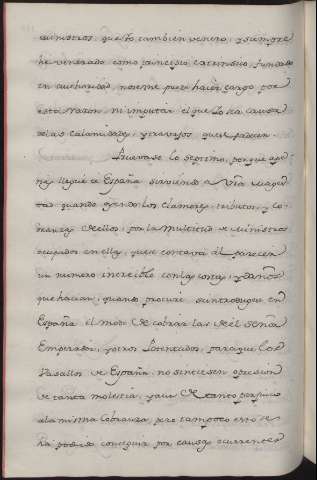 ministros, que yo tambien venero, y siempre
he venerado como principio extensivo, fundado
en authoridad, no se me puede hacer cargo por
esta razon, ni imputar el que yo sea causa
de las calamidades, y travajos que se padecen.
Pruevase lo septimo, porque ape-
nas llegué a España sirviendo a Vra Mages-
tad quando oyendo los clamores, tributos, y co-
branzas de ellos, por la multitud de Ministros
ocupados en ellas, que se contava al parecer
un numero increible con las costas, y daños
que hacian, quando procuré se introdugese en
España el modo de cobrar las de el Señor
Emperador, y otros Potentados, para que los
Vasallos de España no sintiesen opresion
de tanta molestia, y aun de tanto perjuicio
a la misma Cobranza, pero tampoco esto se
ha podido conseguir por causas ocurrentes